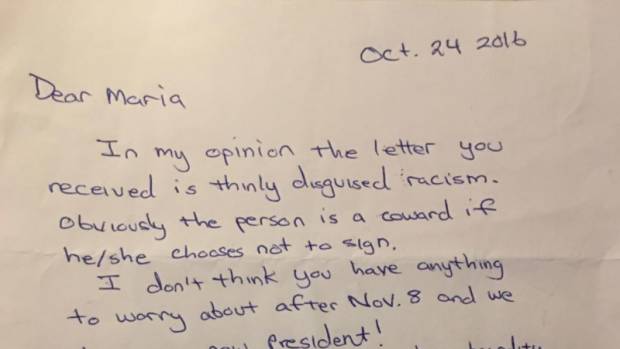 Oct. 24 2016
Dear Maria
In my opinion the letter you
received is thinly disguised racism.
Obviously the person is a coward if
he/she chooses not to sign.
I don't think you have anything
to worry about after Nov. 8 and we
President!